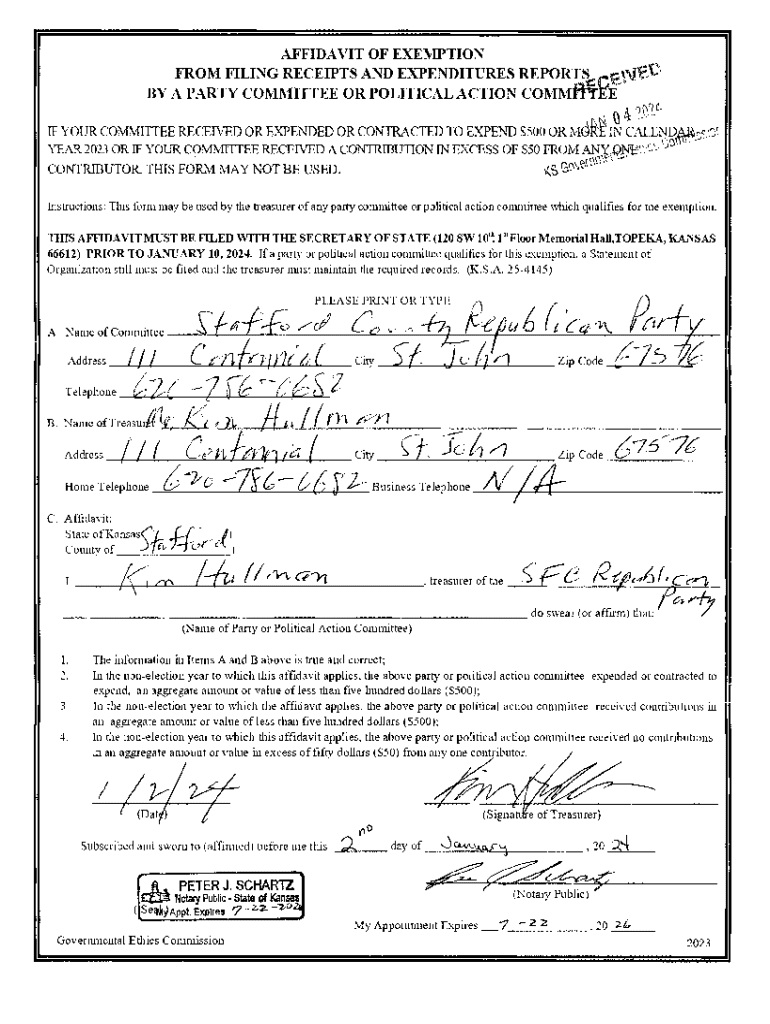 AFFIDAVIT OF EXEMPTION
FROM FILING RECEIPTS AND EXPENDITURES REPORTS
BY A PARTY COMMITTEE OR POLITICAL ACTION COMMITTEE
RECEIVED
JAN 04 2024
KS Governmental Ethics Commission
IF YOUR COMMITTEE RECEIVED OR EXPENDED OR CONTRACTED TO EXPEND $500 OR MORE IN CALENDAR
YEAR 2023 OR IF YOUR COMMITTEE RECEIVED A CONTRIBUTION IN EXCESS OF $50 FROM ANY ONE
CONTRIBUTOR, THIS FORM MAY NOT BE USED.
Instructions: This form may be used by the treasurer of any party committee or political action committee which qualifies for the exemption.
THIS AFFIDAVIT MUST BE FILED WITH THE SECRETARY OF STATE (120 SW 10th, 1st Floor Memorial Hall, TOPEKA, KANSAS
66612) PRIOR TO JANUARY 10, 2024. If a party or political action committee qualifies for this exemption, a Statement of
Organization still must be filed and the treasurer must maintain the required records. (K.S.A. 25-4145)
PLEASE PRINT OR TYPE
A. Name of Committee Stafford County Republican Party
Address 111 Centennial City St. John Zip Code 67576
Telephone 620-786-6682
B. Name of Treasurer Kim Hullman
Address 111 Centennial City St. John Zip Code 67576
Home Telephone 620-786-6682 Business Telephone N/A
C. Affidavit:
State of Kansas )
County of Stafford )
I Kim Hullman, treasurer of the SFC Republican
Party
do swear (or affirm) that:
(Name of Party or Political Action Committee)
1. The information in Items A and B above is true and correct;
2. In the non-election year to which this affidavit applies, the above party or political action committee expended or contracted to
expend, an aggregate amount or value of less than five hundred dollars ($500);
3 In the non-election year to which the affidavit applies, the above party or political action committee received contributions in
an aggregate amount or value of less than five hundred dollars ($500);
4. In the non-election year to which this affidavit applies, the above party or political action committee received no contributions
in an aggregate amount or value in excess of fifty dollars ($50) from any one contributor.
1/2/24 Kim Hullman
(Date) (Signature of Treasurer)
Subscribed and sworn to (affirmed) before me this 2nd day of January, 20 24
PETER J. SCHARTZ
Notary Public - State of Kansas
(Seal) My Appt. Expires 7-22-202
(Notary Public)
My Appointment Expires 7-22, 20 26
Governmental Ethics Commission 2023